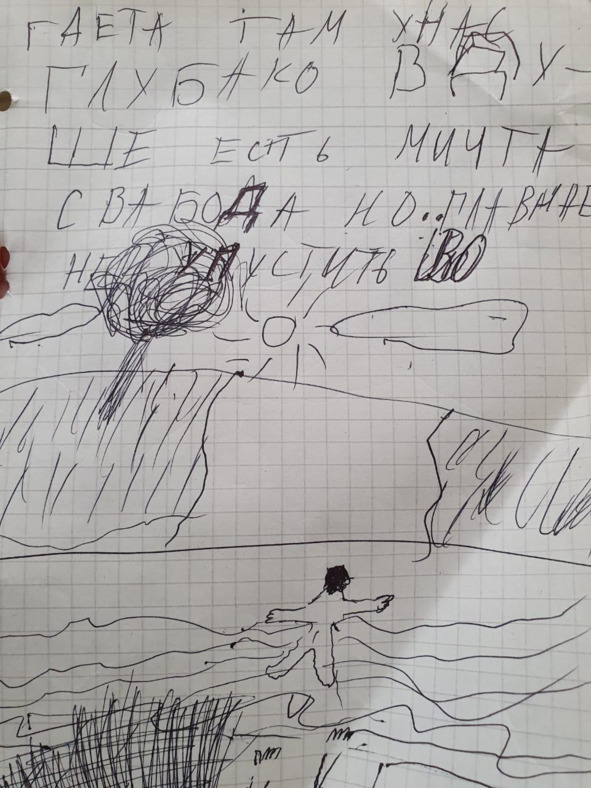 ГДЕТА ТАМ УНАС
ГЛУБАКО В ДУ-
ШЕ ЕСТЬ МИЧТА
СВАБОДА НО..ГЛАВНАЕ
НЕ УПУСТИТЬ